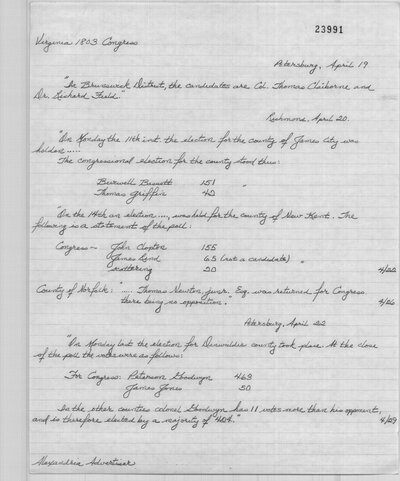 23991
Virginia 1803 Congress
Petersburg, April 19
"In Brunswick District, the candidates are Col. Thomas Claiborne and
Dr. Richard Field."
Richmond, April 20.
"On Monday the 11th inst. the election for the county of James City was
holden .....
The congressional election for the county stood thus:
Burwell Bassett 151 "
Thomas Griffin 42
"On the 14th an election ...., was held for the county of New Kent. The
following is a statement of the poll:
Congress— John Clopton 155
James Bond 65 (not a candidate) "
scattering 20 4/22
County of Norfolk: "..... Thomas Newton, junr. Esq. was returned for Congress
there being no opposition." 4/26
Petersburg, April 22
"On Monday last the election for Dinwiddie county took place. At the close
of the poll the votes were as follows:
For Congress: Peterson Goodwyn 463
James Jones 50
In the other counties colonel Goodwyn has 11 votes more than his opponent,
and is therefore elected by a majority of 424." 4/29
Alexandria Advertiser